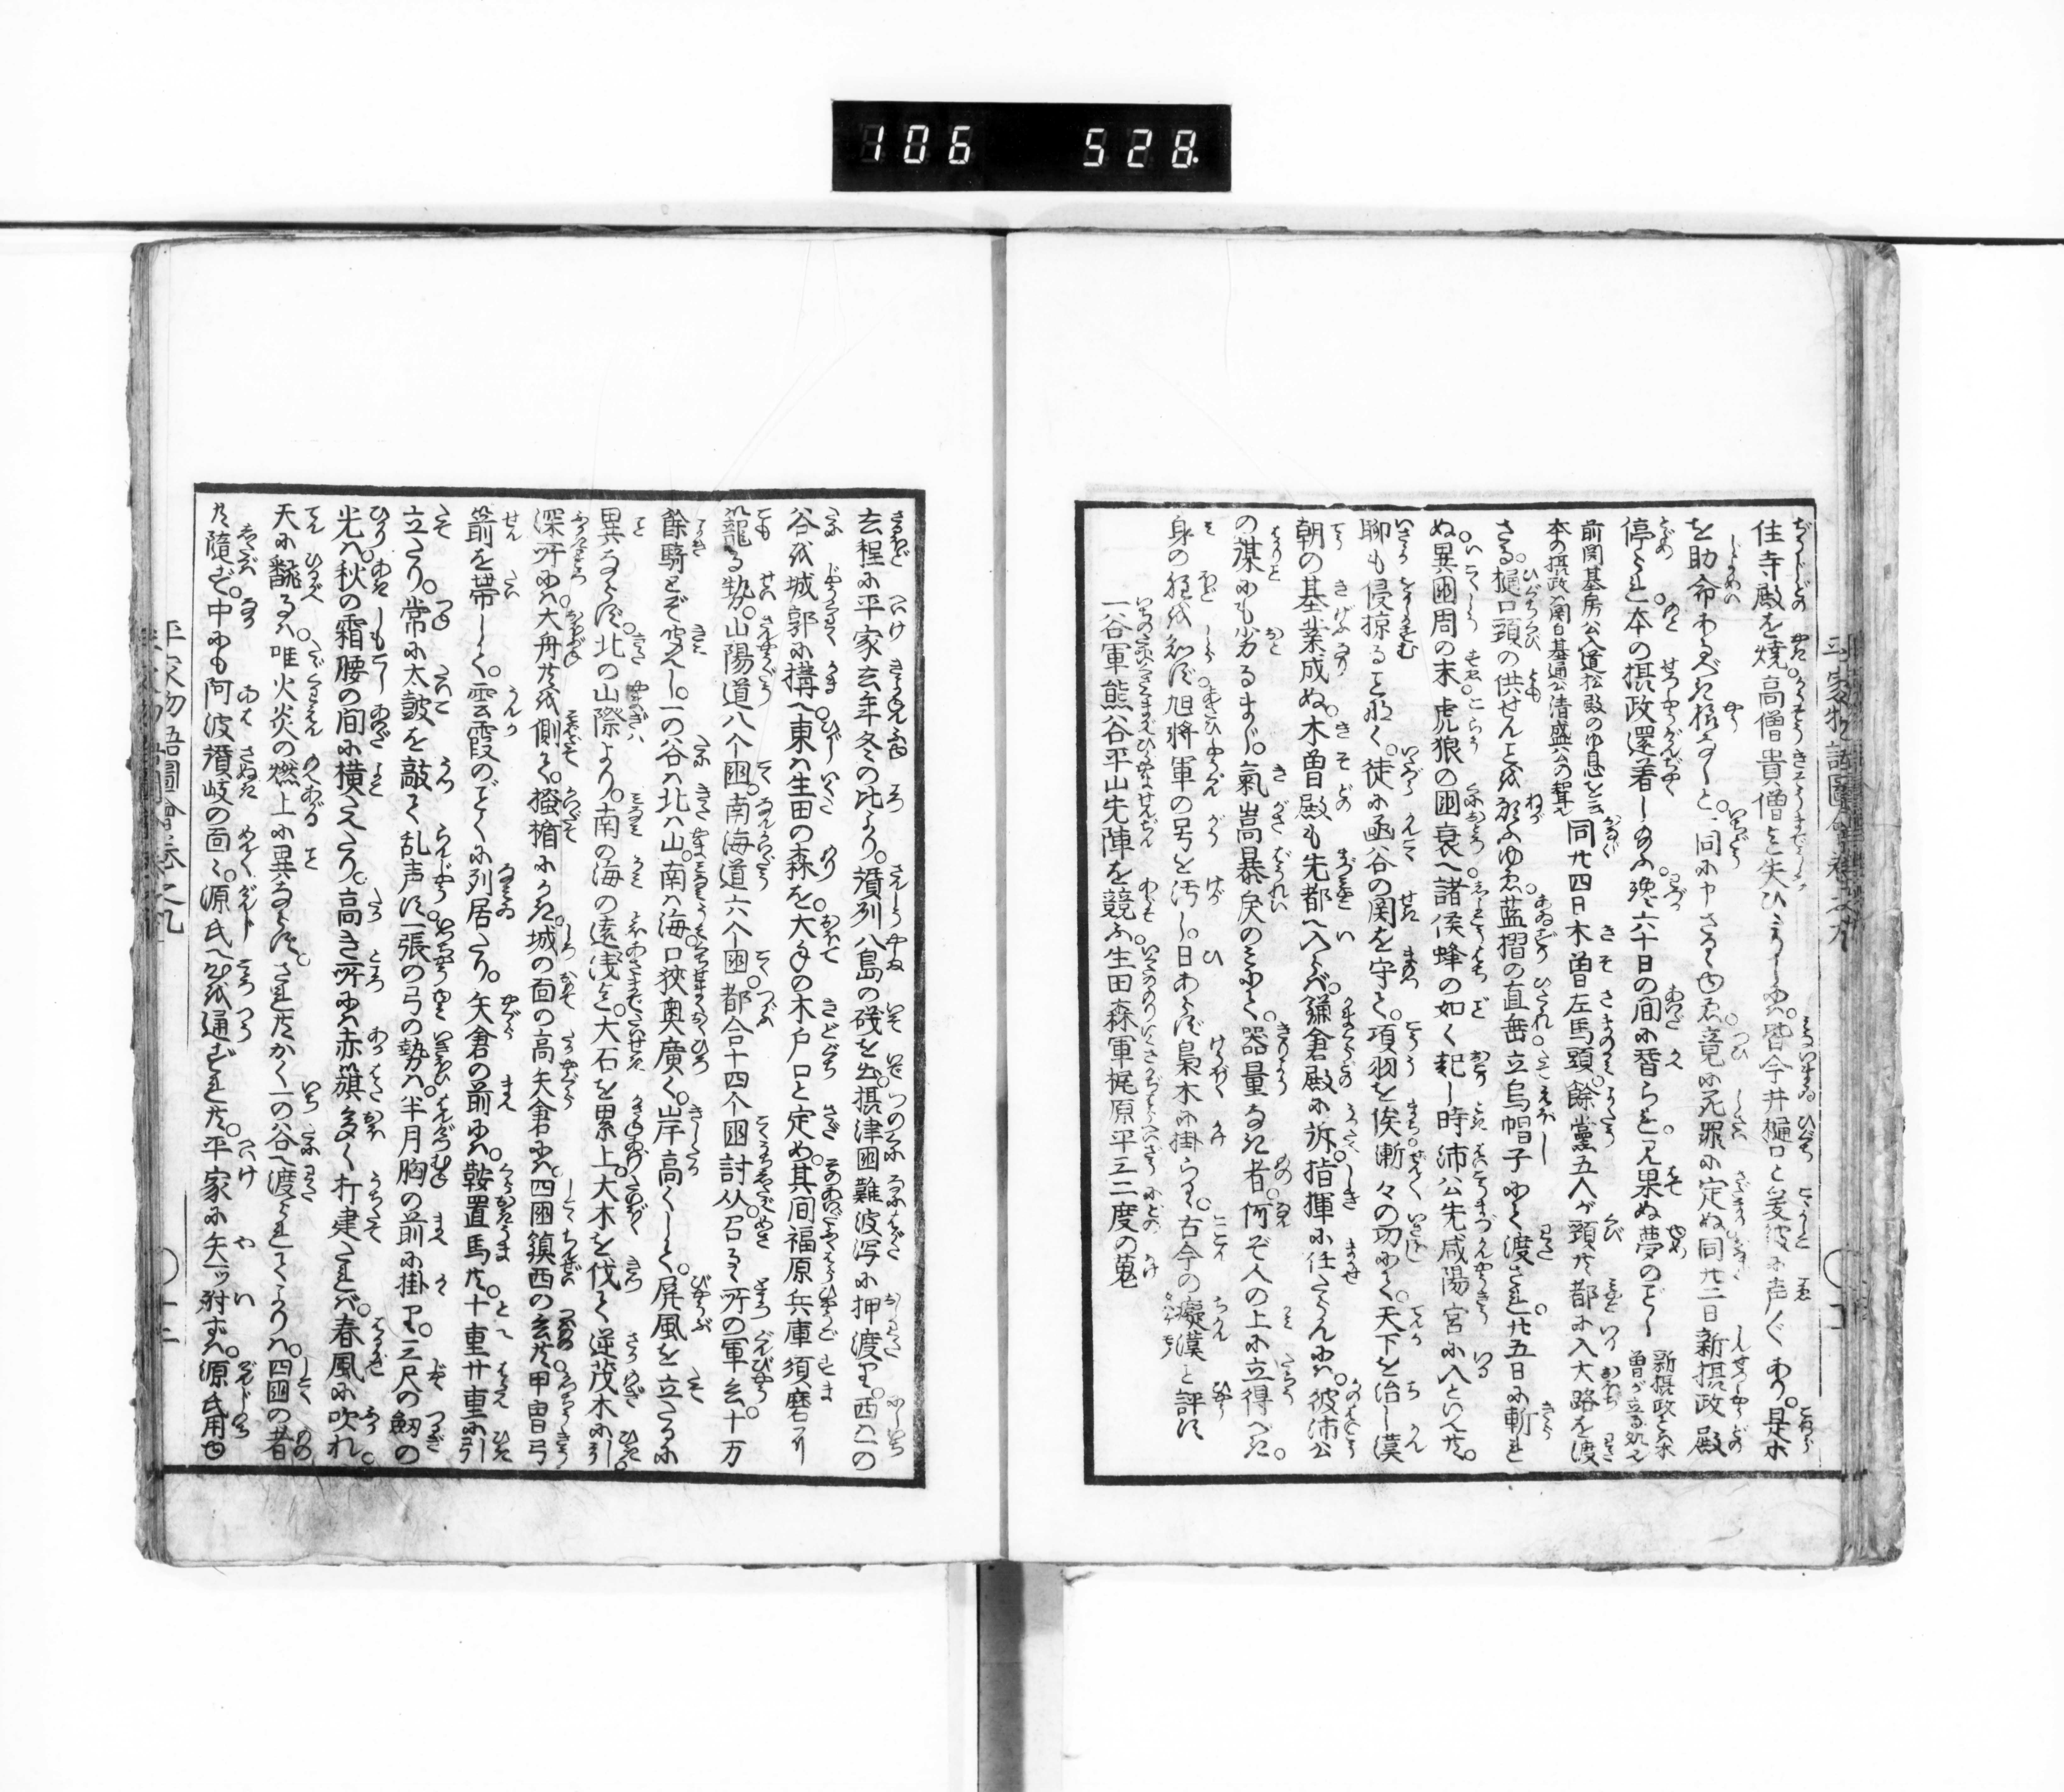 106 528
住寺殿を焼。高僧貴僧を失ひまゐらせ。皆今井樋口と爰彼に声〴〵あり。是に
を助命あるべき様なしと。一同に申さるゝ由ゑ。竟に死罪に定ぬ同廿二日新摂政殿
停られ。本の摂政還着し給ふ。残六十日の間に替られ。見果ぬ夢のごとし
前関基房公松殿のゆ息を云
本の摂政関白基通公清盛公の聟也
同廿四日木曽左馬頭。餘黨五人が頸共都に入大路を渡
さる。樋口頭の供せんとを願ふゆゑ。藍摺の直垂立烏帽子にて渡され。廿五日に斬れ
ぬ。異国周の末。虎狼の国衰へ諸侯蜂の如く起し時沛公先咸陽宮に入といへ共。
聊も侵掠ることなく。徒に函谷の関を守て。項羽を俟漸々の功にて。天下を治し漢
朝の基業成ぬ。木曽殿も先都へ入らば。鎌倉殿に訴。指揮に任たらんには。彼沛公
の謀にも劣るまじ。氣嵩暴戻のみにて。器量なき者。何ぞ人の上に立得べき。
身の程を知ず。旭将軍の号を汚し。日あらず梟木に掛らる。古今の癡漢と評す
一谷軍熊谷平山先陣を競ふ。生田森軍梶原平三二度の蒐
去程に平家去年冬の比より。讃州八島の磯を出。摂津国難波潟に押渡り。西は一の
谷を城郭に構へ。東は生田の森を。大手の木戸口と定め。其間福原兵庫須磨に
籠る勢。山陽道八个国。南海道六个国。都合十四个国討从。召るゝ所の軍兵十万
餘騎とぞ聞えし。一の谷は北は山。南は海。口狭奥廣く。岸高くして。屏風を立たるに
異ならず。北の山際より。南の海の遠浅迄。大石を累上。大木を伐て逆茂木に引。
深所には大舟共を側て。掻楯にかき。城の面の高矢倉には。四国鎮西の兵共。甲冑弓
箭を帯して。雲霞のごとくに列居たり。矢倉の前には。鞍置馬共。十重廿重に引
立たり。常に太皷を敲て乱声す。一張の弓の勢は。半月胸の前に掛り。三尺の劔の
光は。秋の霜腰の間に横たえたり。高き所には赤旗多く打建たれば。春風に吹れ。
天に飜るは。唯火炎の燃上に異ならず。されどかく一の谷へ渡られてよりは。四国の者
共隨ず。中にも阿波讃岐の面々。源氏へ心を通ずれ共。平家に矢一ッ射ずは。源氏用ゆ
平家物語圖會巻之九